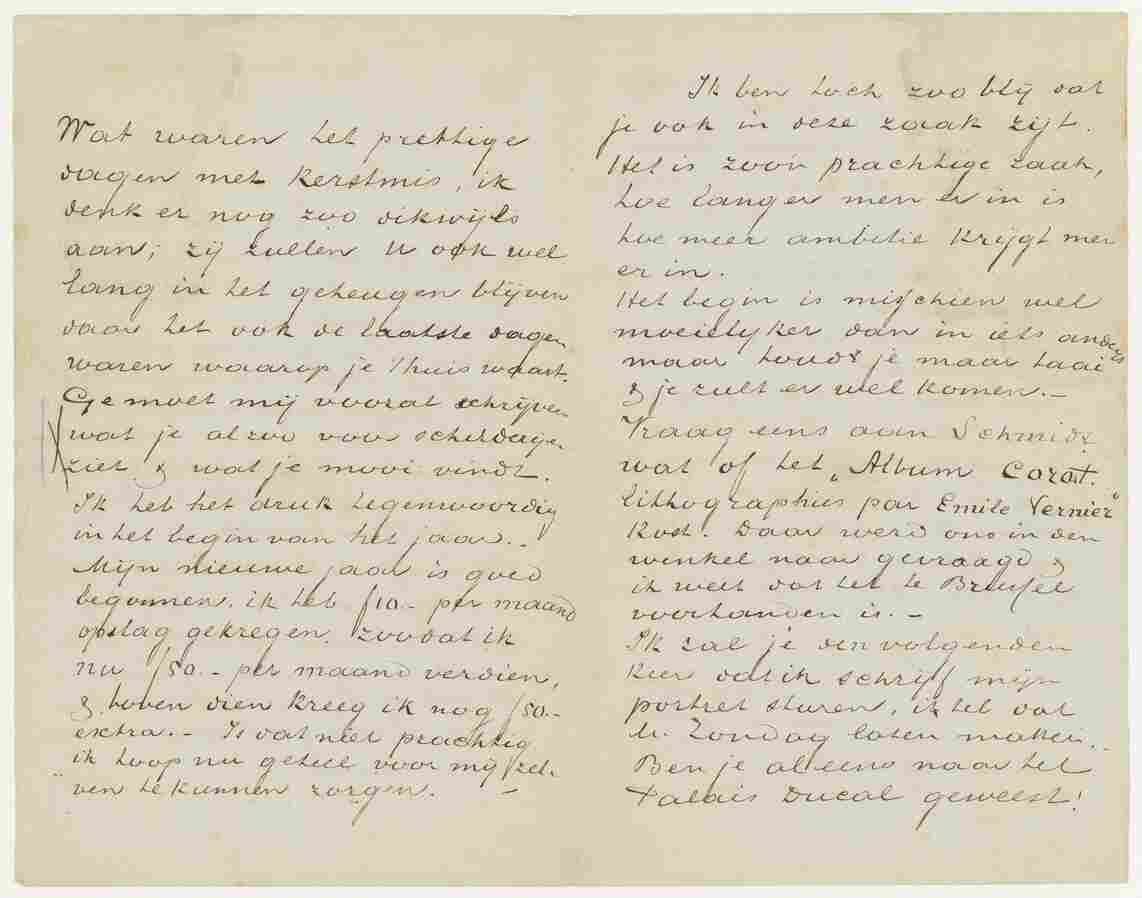 Wat waren het prettige
dagen met Kerstmis, ik
denk er nog zoo dikwijls
aan; zij zullen U ook wel
lang in het geheugen blijven
daar het ook de laatste dagen
waren waarop je thuis waart.
Ge moet mij vooral schrijven
wat je alzoo voor schilderijen
ziet & wat je mooi vindt.
Ik heb het druk tegenwoordig
in het begin van het jaar.–
Mijn nieuwe jaar is goed
begonnen, ik heb f10.– per maand
opslag gekregen, zoodat ik
nu f50.– per maand verdien,
& boven dien kreeg ik nog f50.–
extra.– Is dat niet prachtig
ik hoop nu geheel voor mij zel-
ven te kunnen zorgen. –
Ik ben toch zoo blij dat
je ook in deze zaak zijt.
Het is zoo'n prachtige zaak,
hoe langer men er in is
hoe meer ambitie krijgt men
er in.
Het begin is misschien wel
moeielijker dan in iets anders
maar houdt je maar taai
& je zult er wel komen.–
Vraag eens aan Schmidt
wat of het „Album Corot.
lithographies par Emile Vernier"
kost. Daar werd ons in den
winkel naar gevraagd &
ik weet dat het te Brussel
voorhanden is.–
Ik zal je den volgenden
keer dat ik schrijf mijn
portret sturen, ik heb dat
l.l. Zondag laten maken.
Ben je al eens naar het
Palais Ducal geweest!